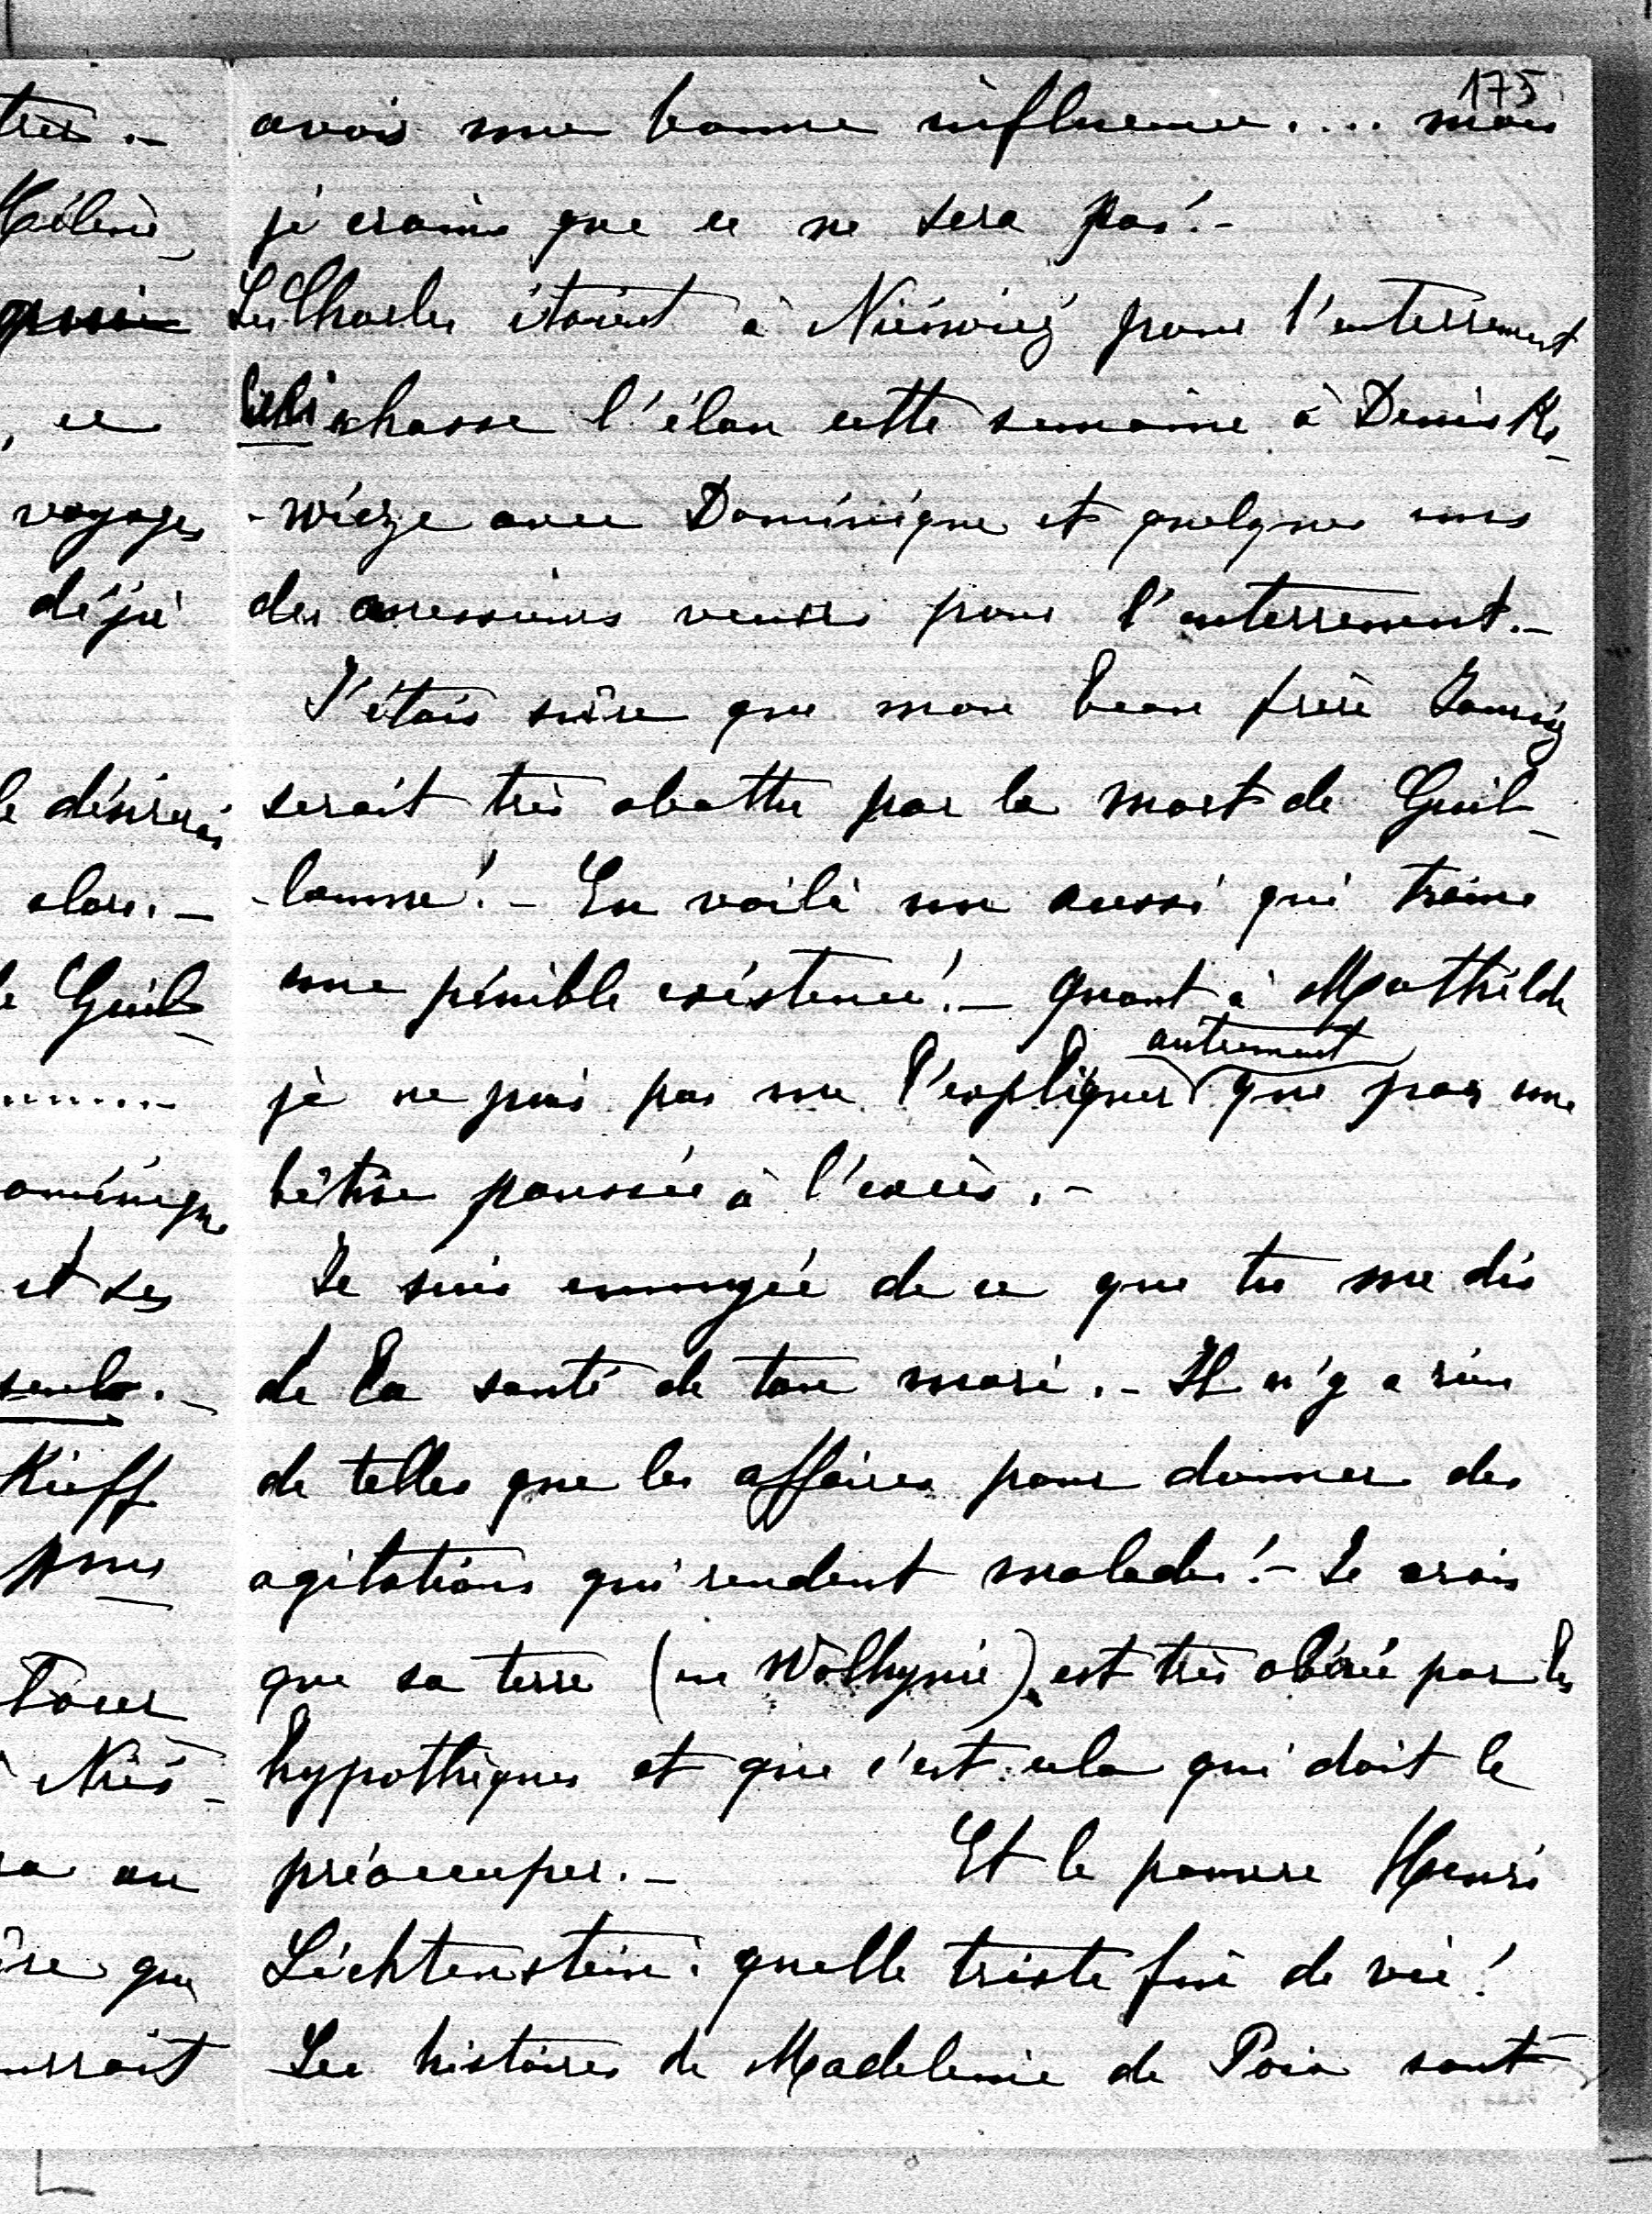 175
avoir une bonne influence.... mais
je crains que ce ne sera pas!-
Les Charles étaient à Nieswiez pour l'enterrement
chasse l'élan cette semaine à Denisko-
-wicze avec Dominique et quelques uns
des messieurs venus pour l'enterrement.-
J'étais sûre que mon beau frère
serait très abattu par la mort de Guil-
-laume!- En voilà un aussi qui traine
une pénible existence!- Quant à Mathilde
autrement
je ne puis pas me l'expliquer que par une
bêtise poussée à l'excès.-
Je suis ennuyée de ce que tu me dis
de la santé de ton mari.- Il n'y a rien
de telles que les affaires pour donner des
agitations qui rendent malades!- Je crois
que sa terre (en Wolhynie) est très obérée par les
hypothèques et que c'est cela qui doit le
préoccuper.- Et le pauvre Henri
Liechtenstein! quelle triste fin de vie!
Les histoires de Madeleine de Poix sont
très.-
Hélène
, ce
voyages
déjà
le désirerais
alors.-
le Guil-
........
ominique
et ses
seuls.-
Kieff
Nies-
au
que